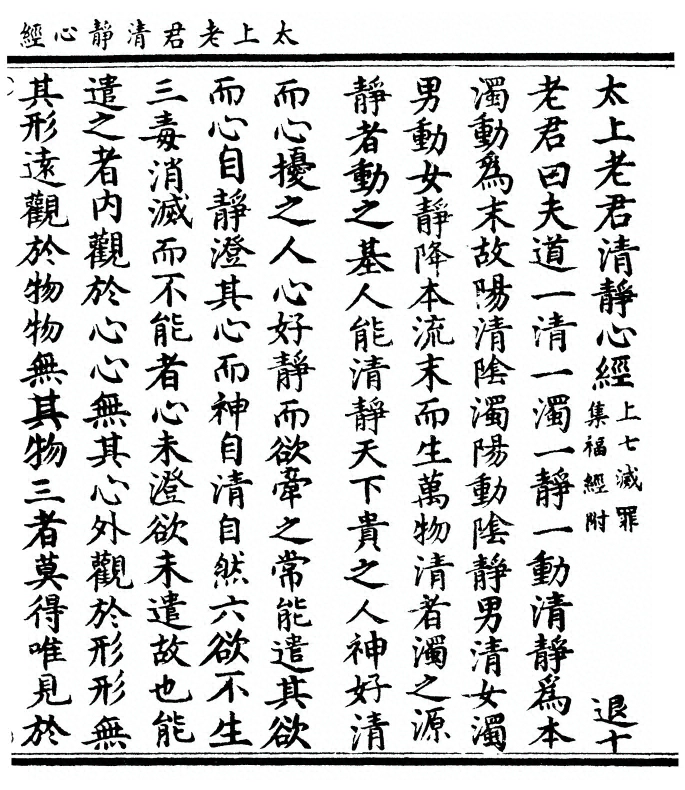 太上老君清靜心經
太上老君清靜心經
上七滅罪
集福經附
退十
老君曰夫道一清一濁一靜一動清靜爲本
濁動爲末故陽清陰濁陽動陰靜男清女濁
男動女靜降本流末而生萬物清者濁之源
靜者動之基人能清靜天下貴之人神好清
而心擾之人心好靜而欲牽之常能遣其欲
而心自靜澄其心而神自清自然六欲不生
三毒消滅而不能者心未澄欲未遣故也能
遣之者内觀於心心無其心外觀於形形無
其形遠觀於物物無其物三者莫得唯見於